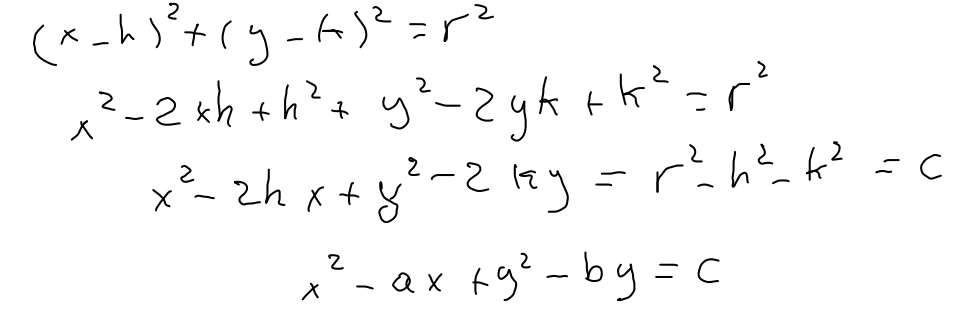 (x-h)²+(y-k)²=r²
x²-2xh+h²+y²-2yk+k²=r²
x²-2hx+y²-2ky=r²-h²-k²=c
x²-ax+y²-by=c